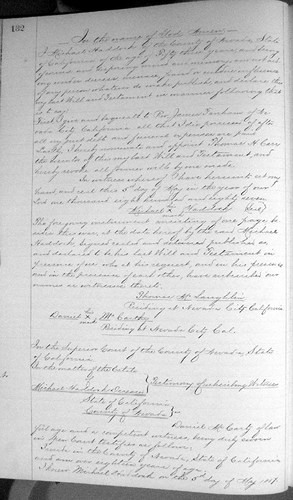 182
In the name of God Amen
I Michael Haddock of the County of Nevada State
of California of the age of Fifty three years, and being
of sound and disposing mind and memory, and not
under duress, menace fraud or undue influence
of any person whatever do make publish and declare this
my last Will and Testament in manner following that
is to say
First I give and bequeath to Rev James
City California all that I die possessed of after
all my just debts and funeral expenses are paid
Lastly I hereby nominate and appoint Thomas H Carr
the of this my last Will and Testament, and
hereby revoke all former wills by me made
In witness whereof I have hereunto set my
hand and seal this 5th day of May in the year of our
Lord one thousand eight hundred and eighty seven
Michael X Haddock (Seal)
The foregoing instrument consisting of one page
was at the date hereof by the said Michael
Haddock signed sealed and delivered published as
and declared to be his last Will and Testament in
presence of us who at his request, and in his presence
and in the presence of each other, have subscribed our
names as witnesses thereto.
Thomas McLaughlin
Residing at Nevada City California
Daniel his X mark McCarthy
Residing at Nevada City Cal.
In the Superior Court of the County of Nevada, State
of California
In the matter of the Estate
of
Michael Haddock Deceased
Testimony of subscribing Witness
State of California
County of Nevada
Daniel McCarty of law
ful age and a competent witness, being duly sworn
in open Court testifies as follows
I reside in the County of Nevada, State of California
and am over eighteen years of age
I knew Michael Haddock on the 5th day of May 188